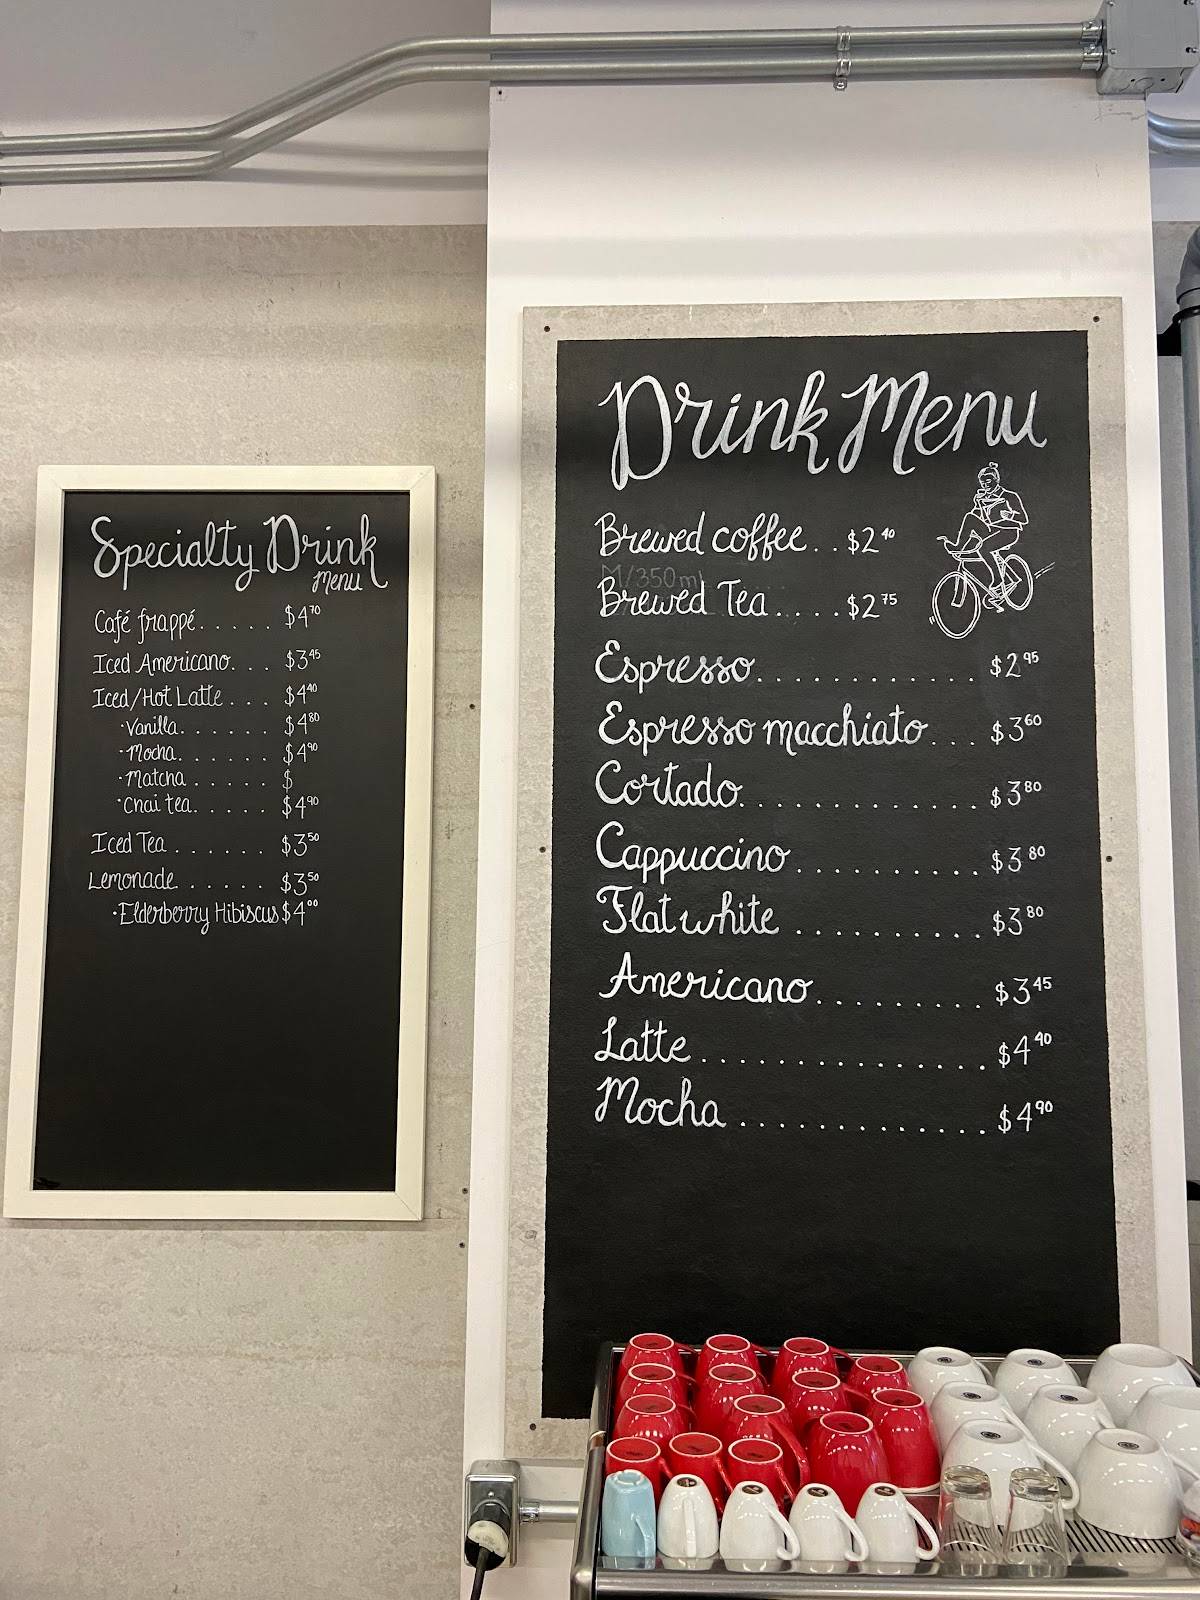 Specialty Drink
Menu
Café frappé. . . . . $4.70
Iced Americano. . . $3.45
Iced/Hot Latte . . . $4.40
·Vanilla. . . . . . $4.80
·Mocha. . . . . . $4.90
·Matcha . . . . . $
·Chai tea. . . . . $4.90
Iced Tea . . . . . . $3.50
Lemonade. . . . . . $3.50
·Elderberry Hibiscus $4.00
Drink Menu
Brewed coffee. . $2.40
M/350ml
Brewed Tea . . . . $2.75
Espresso. . . . . . . . . . . . $2.95
Espresso macchiato. . . $3.60
Cortado. . . . . . . . . . . . . $3.80
Cappuccino . . . . . . . . . . $3.80
Flat white . . . . . . . . . . $3.80
Americano. . . . . . . . . $3.45
Latte . . . . . . . . . . . . . . $4.40
Mocha . . . . . . . . . . . . . $4.90